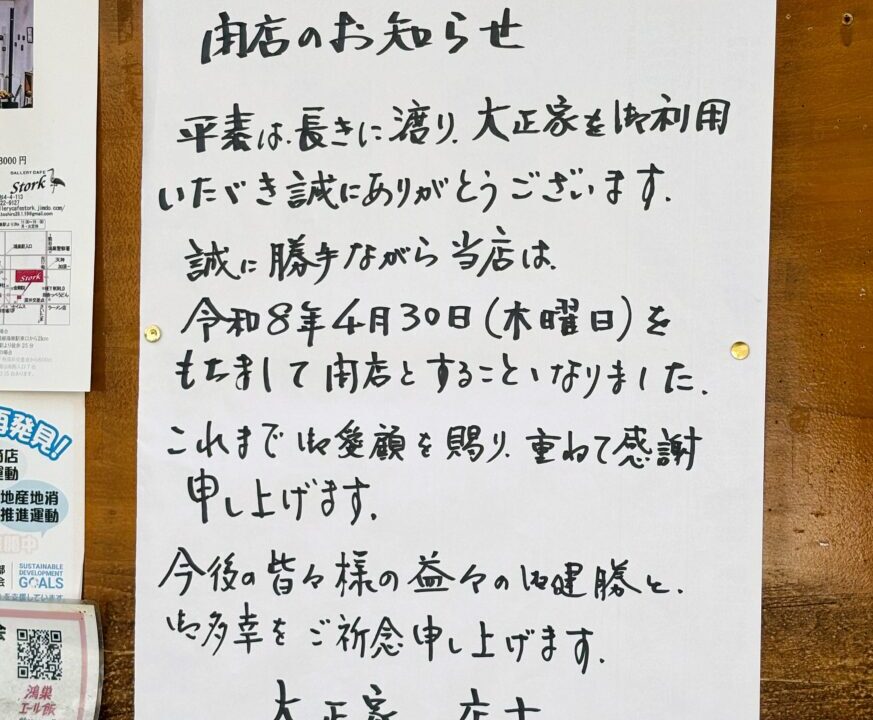 閉店のお知らせ
平素は、長きに渡り、大正家を御利用
いただき誠にありがとうございます。
誠に勝手ながら当店は、
令和8年4月30日(木曜日)を
もちまして閉店とすることになりました。
これまで御愛顧を賜り、重ねて感謝
申し上げます。
今後の皆々様の益々の御健勝と、
御多幸をご祈念申し上げます。
大正家 店主
3000円
GALLERY CAFE
Stork
Stork
再発見!
地産地消
推進運動
SUSTAINABLE
DEVELOPMENT
GOALS
鴻巣
エール飯